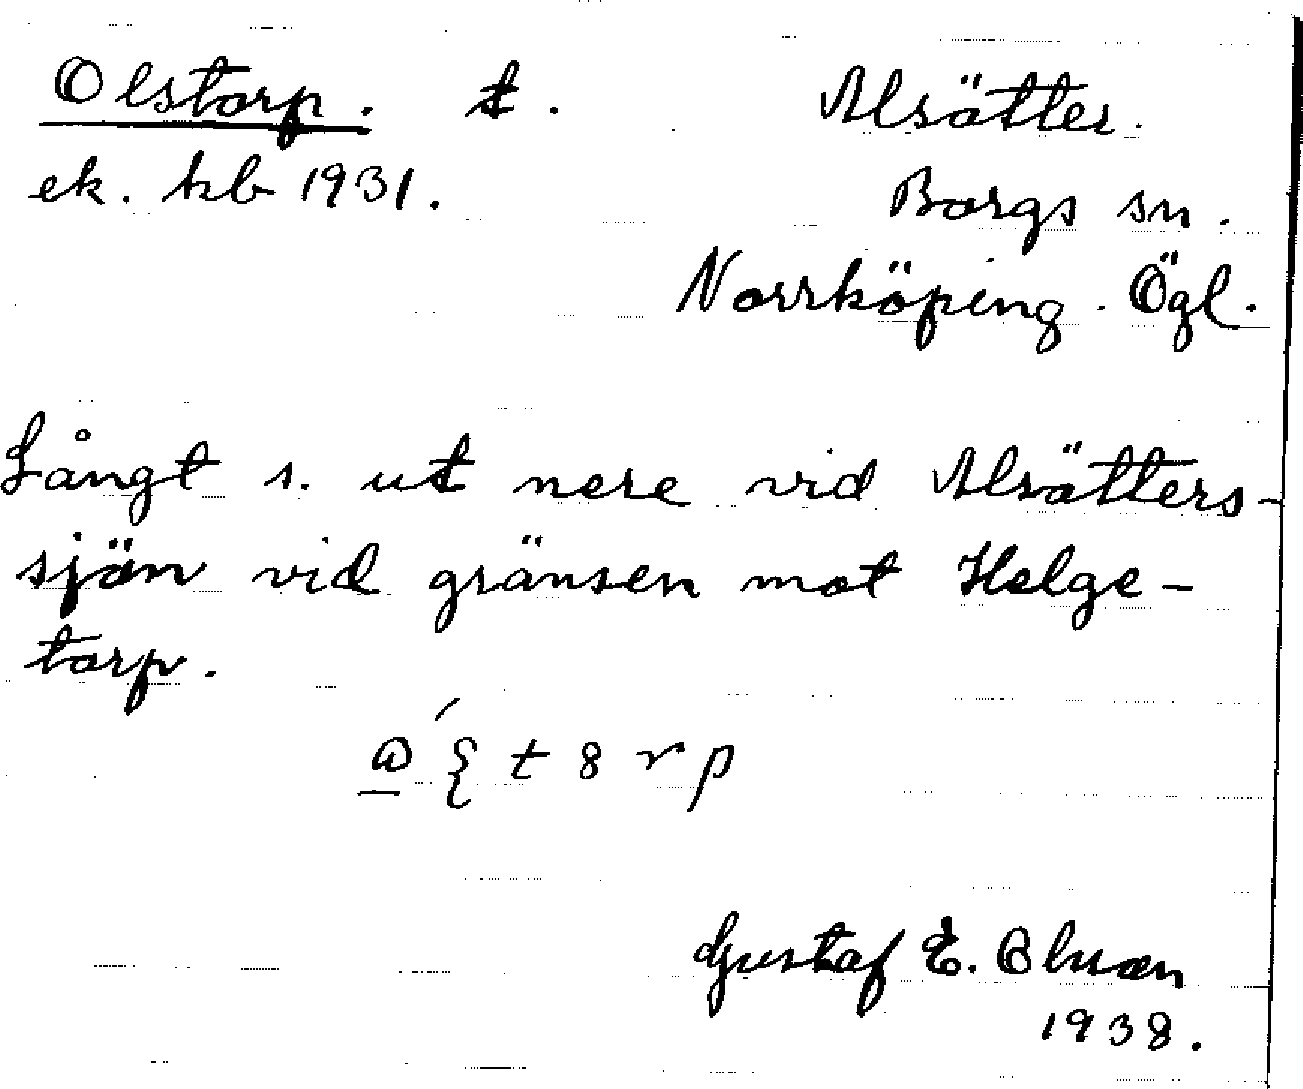 Olstorp. t. Alsätter.
ek. kb 1931. Borgs sn.
Norrköping. Ögl.
Långt s. ut nere vid Alsätters-
sjön vid gränsen mot Helge-
torp.
Gustaf E. Ohman
1938.